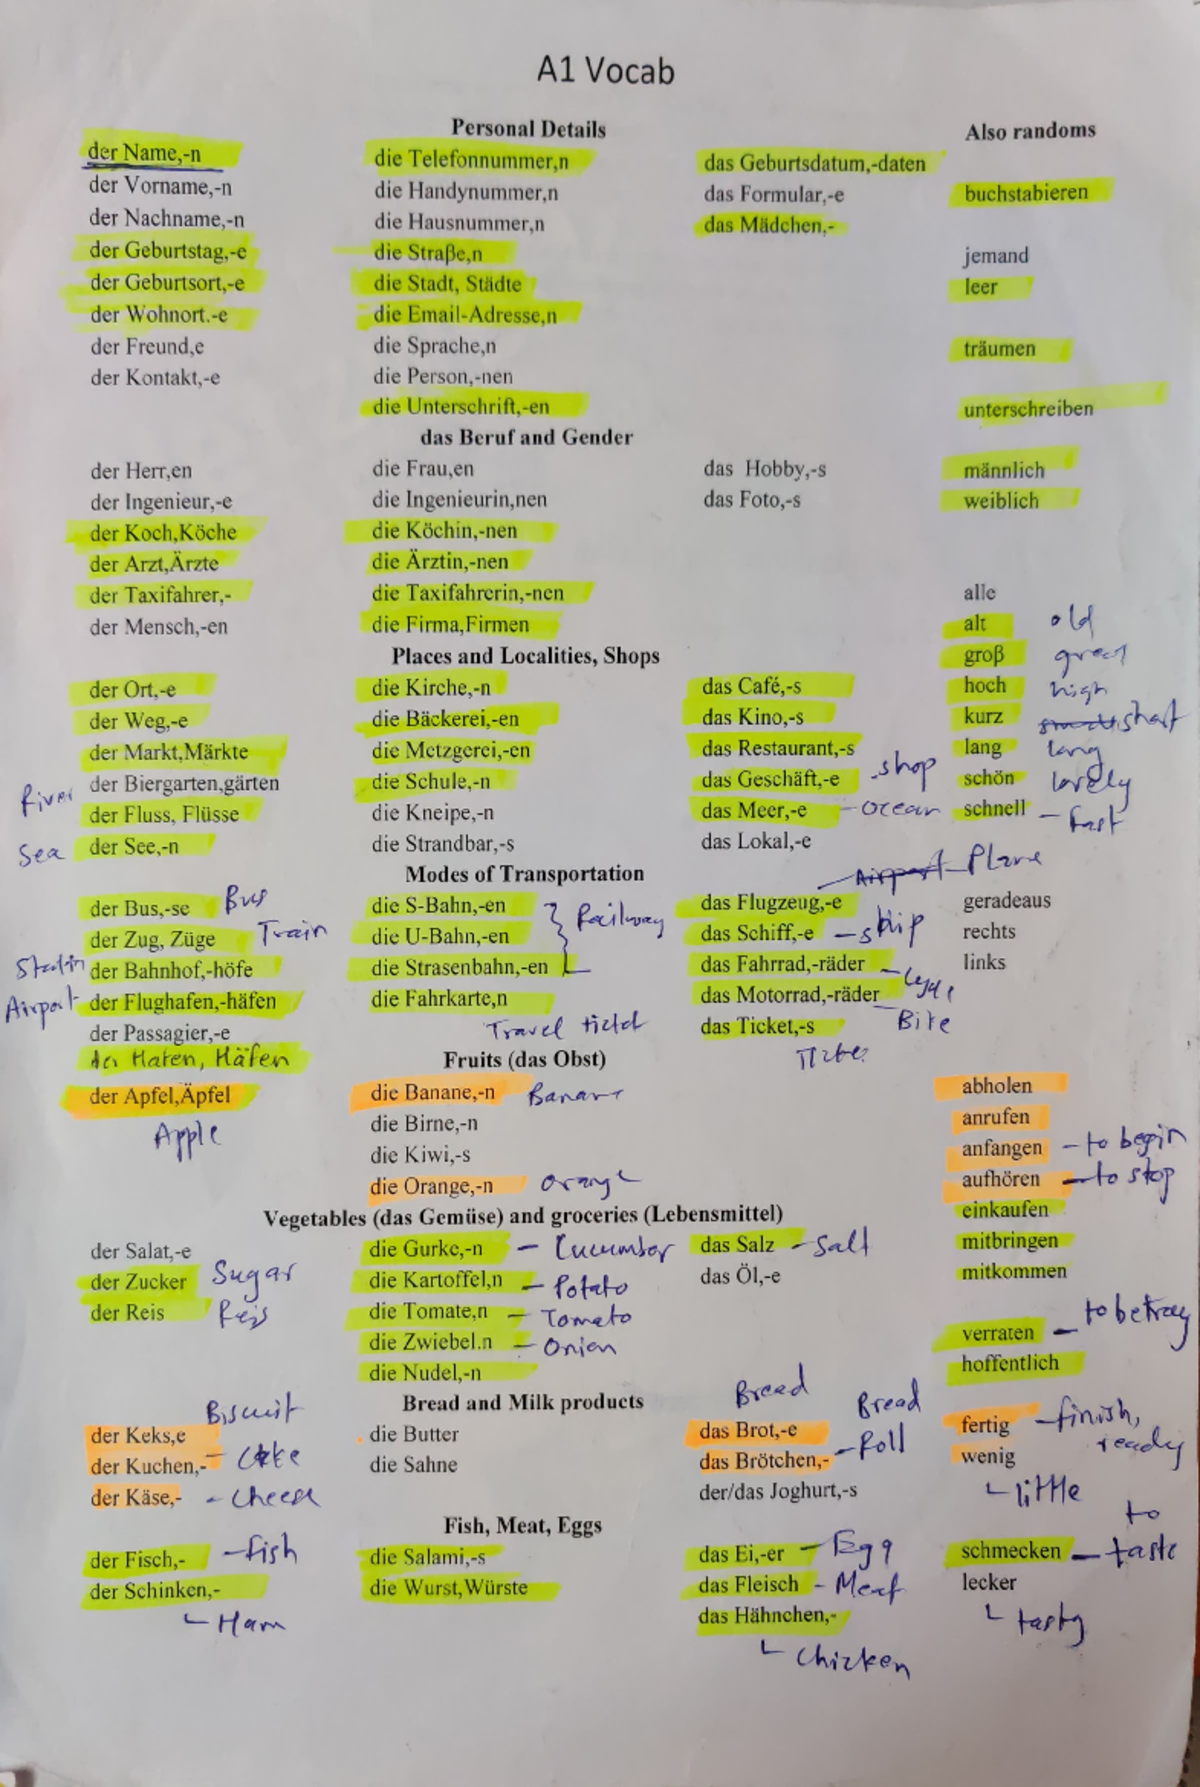 A1 Vocab
Personal Details
Also randoms
der Name,-n
die Telefonnummer,n
das Geburtsdatum,-daten
der Vorname,-n
die Handynummer,n
das Formular,-e
buchstabieren
der Nachname,-n
die Hausnummer,n
das Mädchen,-
der Geburtstag,-e
die Straße,n
jemand
der Geburtsort,-e
die Stadt, Städte
leer
der Wohnort.-e
die Email-Adresse,n
der Freund,e
die Sprache,n
träumen
der Kontakt,-e
die Person,-nen
die Unterschrift,-en
unterschreiben
das Beruf and Gender
der Herr,en
die Frau,en
das Hobby,-s
männlich
der Ingenieur,-e
die Ingenieurin,nen
das Foto,-s
weiblich
der Koch,Köche
die Köchin,-nen
der Arzt,Ärzte
die Ärztin,-nen
der Taxifahrer,-
die Taxifahrerin,-nen
alle
der Mensch,-en
die Firma,Firmen
alt old
Places and Localities, Shops
groß great
der Ort,-e
die Kirche,-n
das Café,-s
hoch high
der Weg,-e
die Bäckerei,-en
das Kino,-s
kurz short
der Markt,Märkte
die Metzgerei,-en
das Restaurant,-s
lang long
der Biergarten,gärten
die Schule,-n
das Geschäft,-e - shop
schön lovely
River der Fluss, Flüsse
die Kneipe,-n
das Meer,-e - ocean
schnell - fast
Sea der See,-n
die Strandbar,-s
das Lokal,-e
Modes of Transportation
Airport Plane
der Bus,-se Bus
die S-Bahn,-en
Railway
das Flugzeug,-e
geradeaus
der Zug, Züge Train
die U-Bahn,-en
das Schiff,-e - ship
rechts
der Bahnhof,-höfe
die Strasenbahn,-en
das Fahrrad,-räder
links
Airport der Flughafen,-häfen
die Fahrkarte,n
das Motorrad,-räder - Bike
der Passagier,-e
Travel
das Ticket,-s
der Hafen, Häfen
Fruits (das Obst)
der Apfel,Äpfel
Apple
die Banane,-n
abholen
die Birne,-n
anrufen
die Kiwi,-s
anfangen - to begin
die Orange,-n orange
aufhören - to stop
Vegetables (das Gemüse) and groceries (Lebensmittel)
einkaufen
der Salat,-e
die Gurke,-n - Cucumber
das Salz - Salt
mitbringen
der Zucker Sugar
die Kartoffel,n - Potato
das Öl,-e
mitkommen
der Reis Reis
die Tomate,n - Tomato
die Zwiebel.n - Onion
verraten - to betray
die Nudel,-n
hoffentlich
Bread and Milk products
Biscuit
der Keks,e
die Butter
Bread
das Brot,-e
fertig - finish, ready
der Kuchen,- - Cake
die Sahne
das Brötchen,- - Bread Roll
wenig
little
der Käse,- - cheese
der/das Joghurt,-s
Fish, Meat, Eggs
der Fisch,- - fish
die Salami,-s
das Ei,-er - Egg
schmecken - to taste
der Schinken,-
Ham
die Wurst,Würste
das Fleisch - Meat
lecker
tasty
das Hähnchen,-
chicken